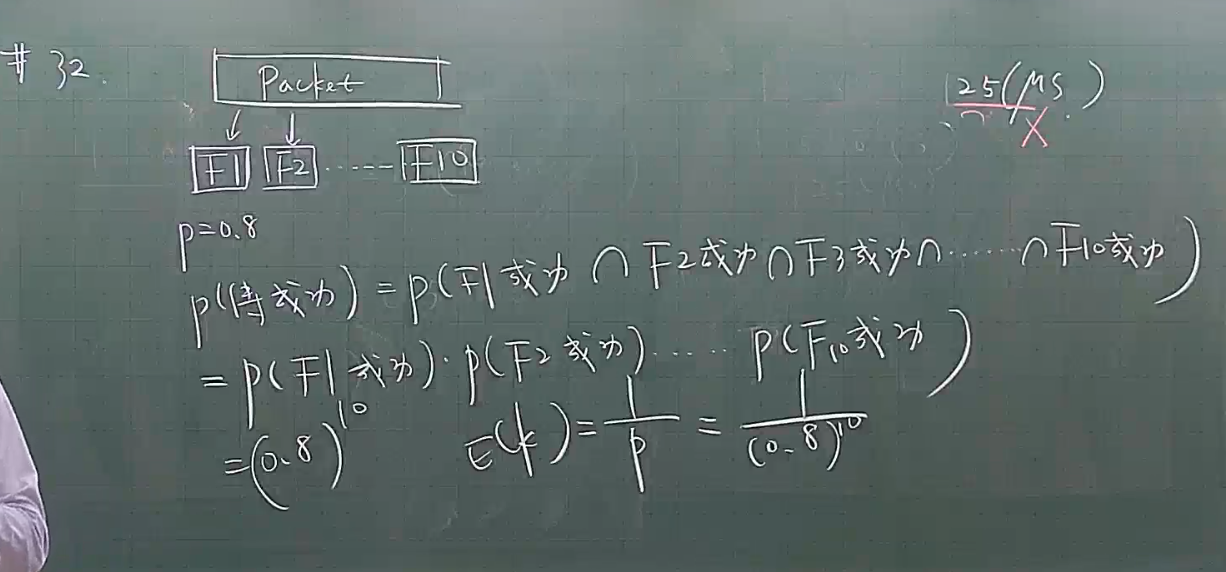 # 32.
Packet
125(μs)
X
F1 F2 ...... F10
p=0.8
p(傳成功) = p(F1成功 ∩ F2成功 ∩ F3成功 ∩ ...... ∩ F10成功)
= p(F1成功)·p(F2成功)...... p(F10成功)
=(0.8)^10 E(k)= 1/p = 1/(0.8)^10